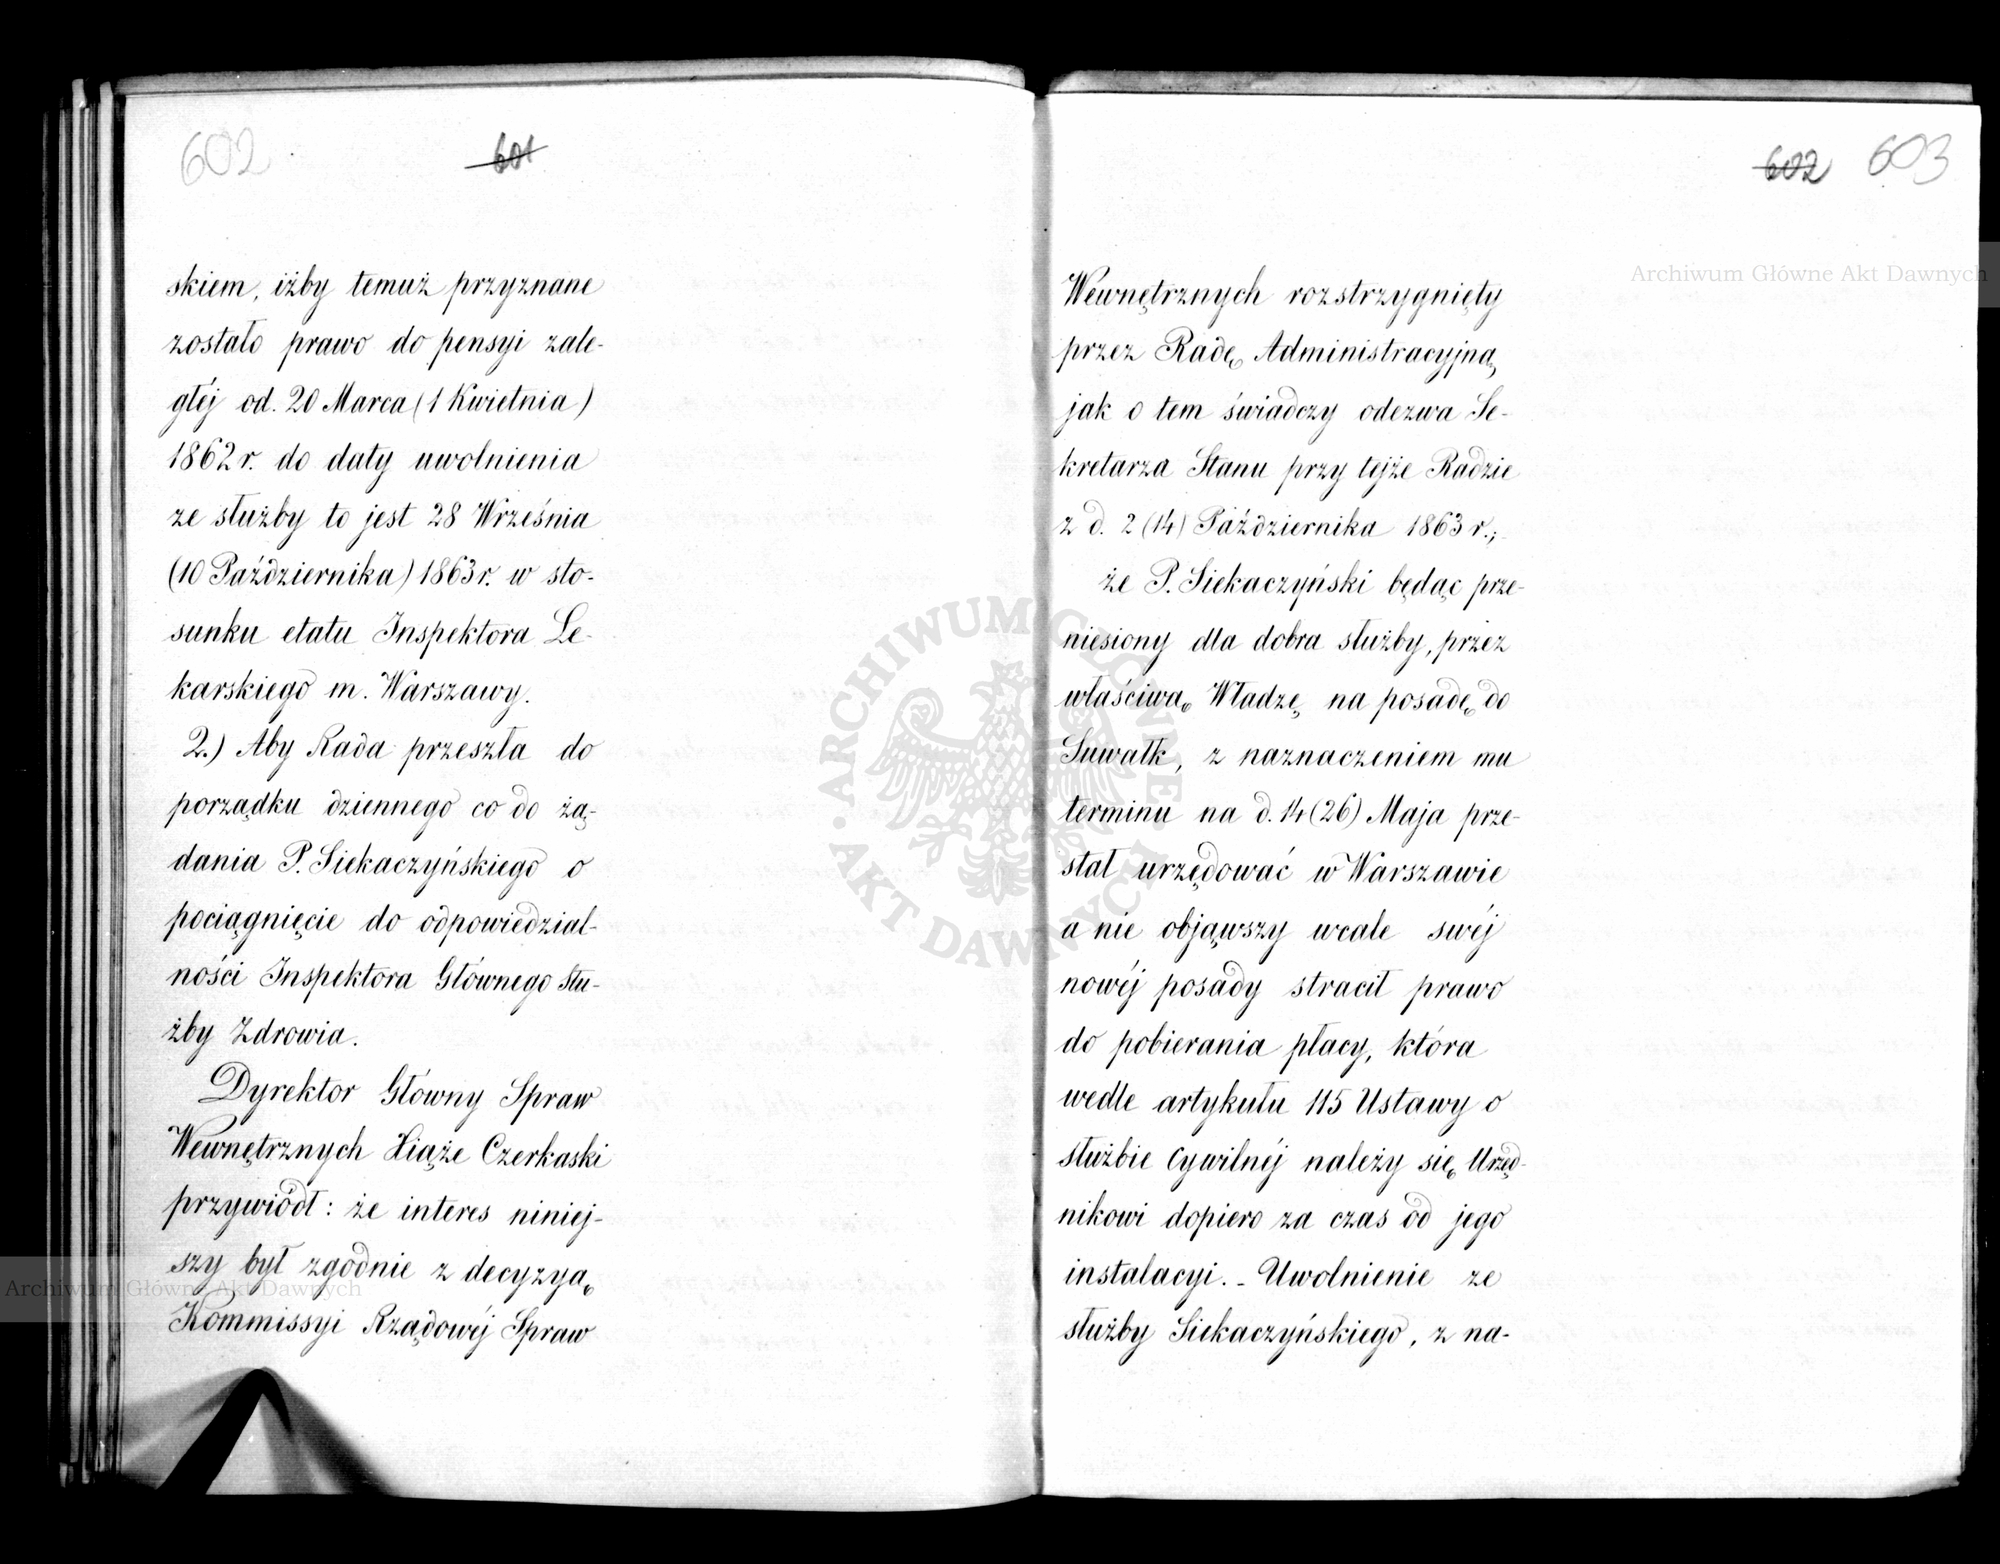 602
601
skiem, iżby temuż przyznane
zostało prawo do pensyi zale-
głéj od. 20 Marca (1 Kwietnia)
1862 r. do daty uwolnienia
ze służby to jest 28 Września
(10 Października) 1863 r. w sto-
sunku etatu Inspektora Le-
karskiego m. Warszawy.
2.) Aby Rada przeszła do
porządku dziennego co do żą-
dania P. Siekaczyńskiego o
pociągnięcie do odpowiedzial-
ności Inspektora Głównego Słu-
żby Zdrowia.
Dyrektor Główny Spraw
Wewnętrznych Xiąże Czerkaski
przywiódł: że interes niniej-
szy był zgodnie z decyzyą
Kommissyi Rządowéj Spraw
602 603
Wewnętrznych rozstrzygnięty
przez Radę Administracyjną,
jak o tem świadczy odezwa Se-
kretarza Stanu przy tejże Radzie
z d. 2 (14) Października 1863 r.;
że P. Siekaczyński będąc prze-
niesiony dla dobra służby, przez
właściwą Władzę na posadę do
Suwałk, z naznaczeniem mu
terminu na d. 14 (26) Maja prze-
stał urzędować w Warszawie
a nie objąwszy wcale swéj
nowéj posady stracił prawo
do pobierania płacy, która
wedle artykułu 115 Ustawy o
służbie Cywilnéj należy się Urzęd-
nikowi dopiero za czas od jego
instalacyi. - Uwolnienie ze
służby Siekaczyńskiego, z na-
Archiwum Główne Akt Dawnych
Archiwum Główne Akt Dawnych
ARCHIWUM GŁÓWNE
AKT DAWNYCH